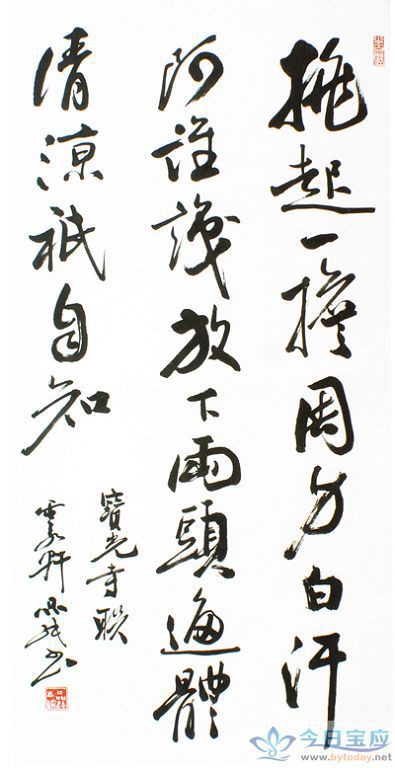 挑起一擔周身白汗
阿誰識放下兩頭遍體
清涼祇自知
寶光寺联
今日宝应
www.bytoday.net